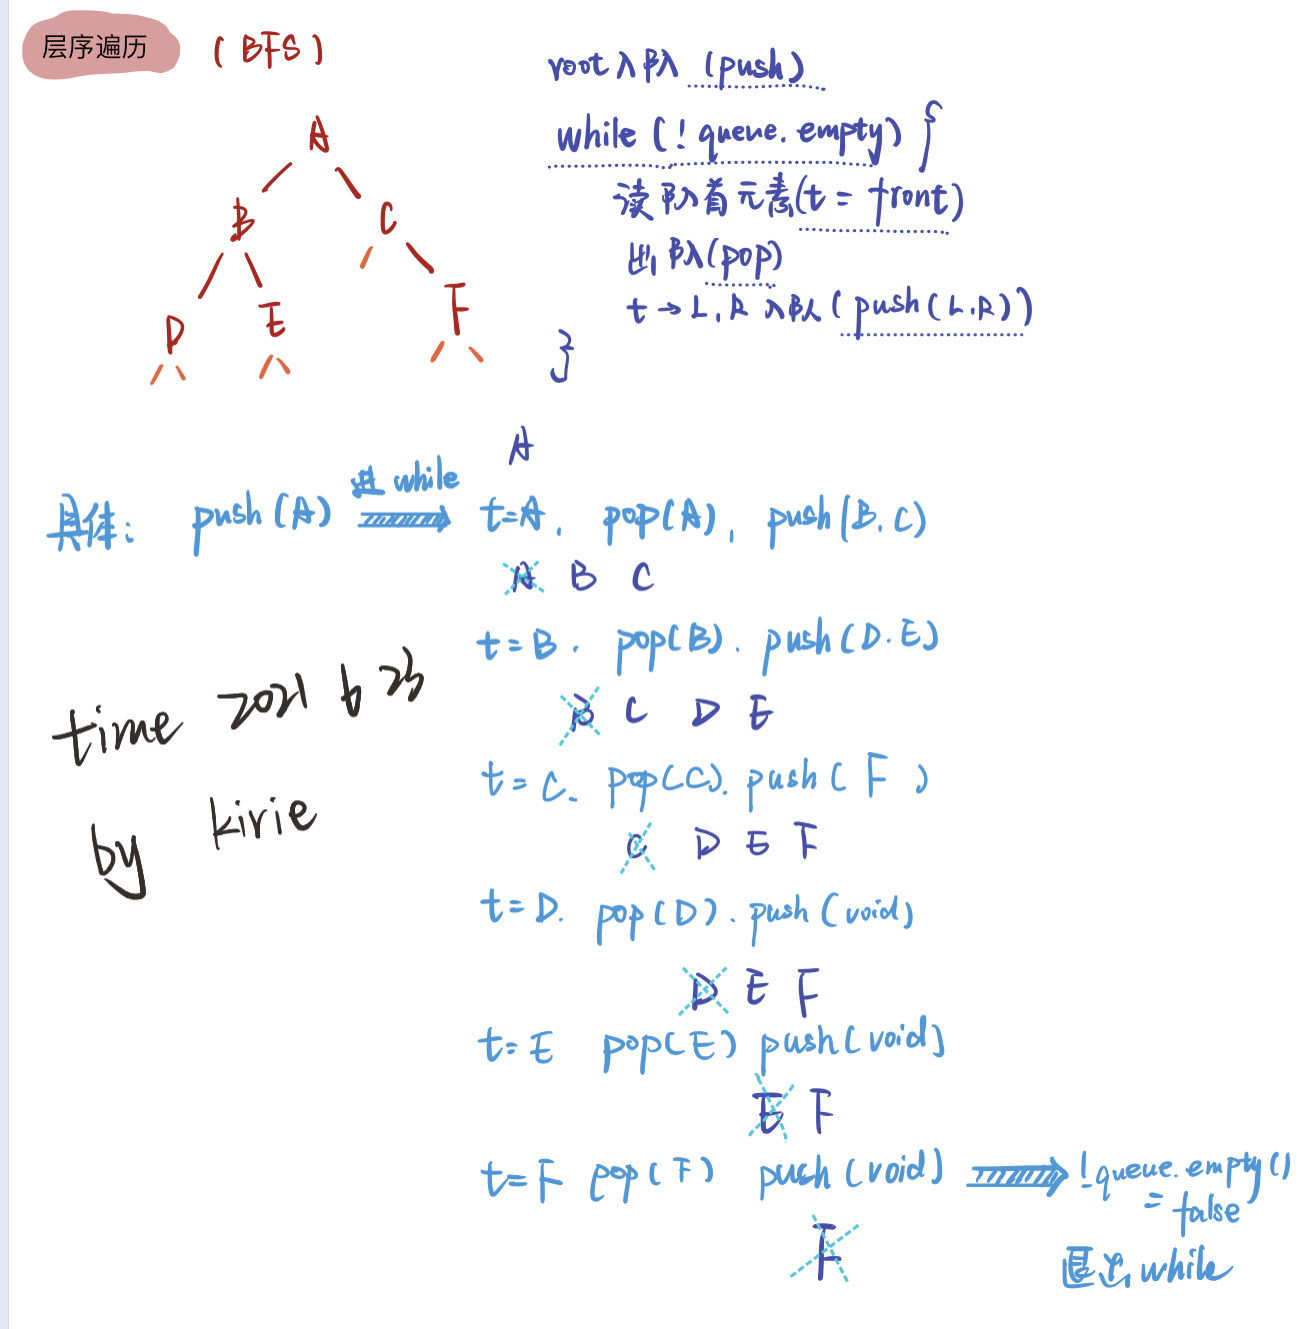 层序遍历 (BFS)
A
B C
D E F
root入队 (push)
while (! queue.empty) {
读队首元素(t = front)
出队(pop)
t → L,R 入队 (push(L.R))
}
A
具体: push(A) 进 while t=A, pop(A), push(B.C)
A B C
t=B. pop(B). push(D.E)
B C D E
t=C. pop(C). push( F )
C D E F
t=D. pop(D). push(void)
D E F
t=E pop(E) push(void)
E F
t=F pop(F) push(void) !queue.empty()
= false
F
退出while
time 2021 6 23
by kirie